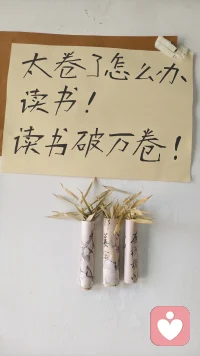 太卷了怎么办
读书！
读书破万卷！